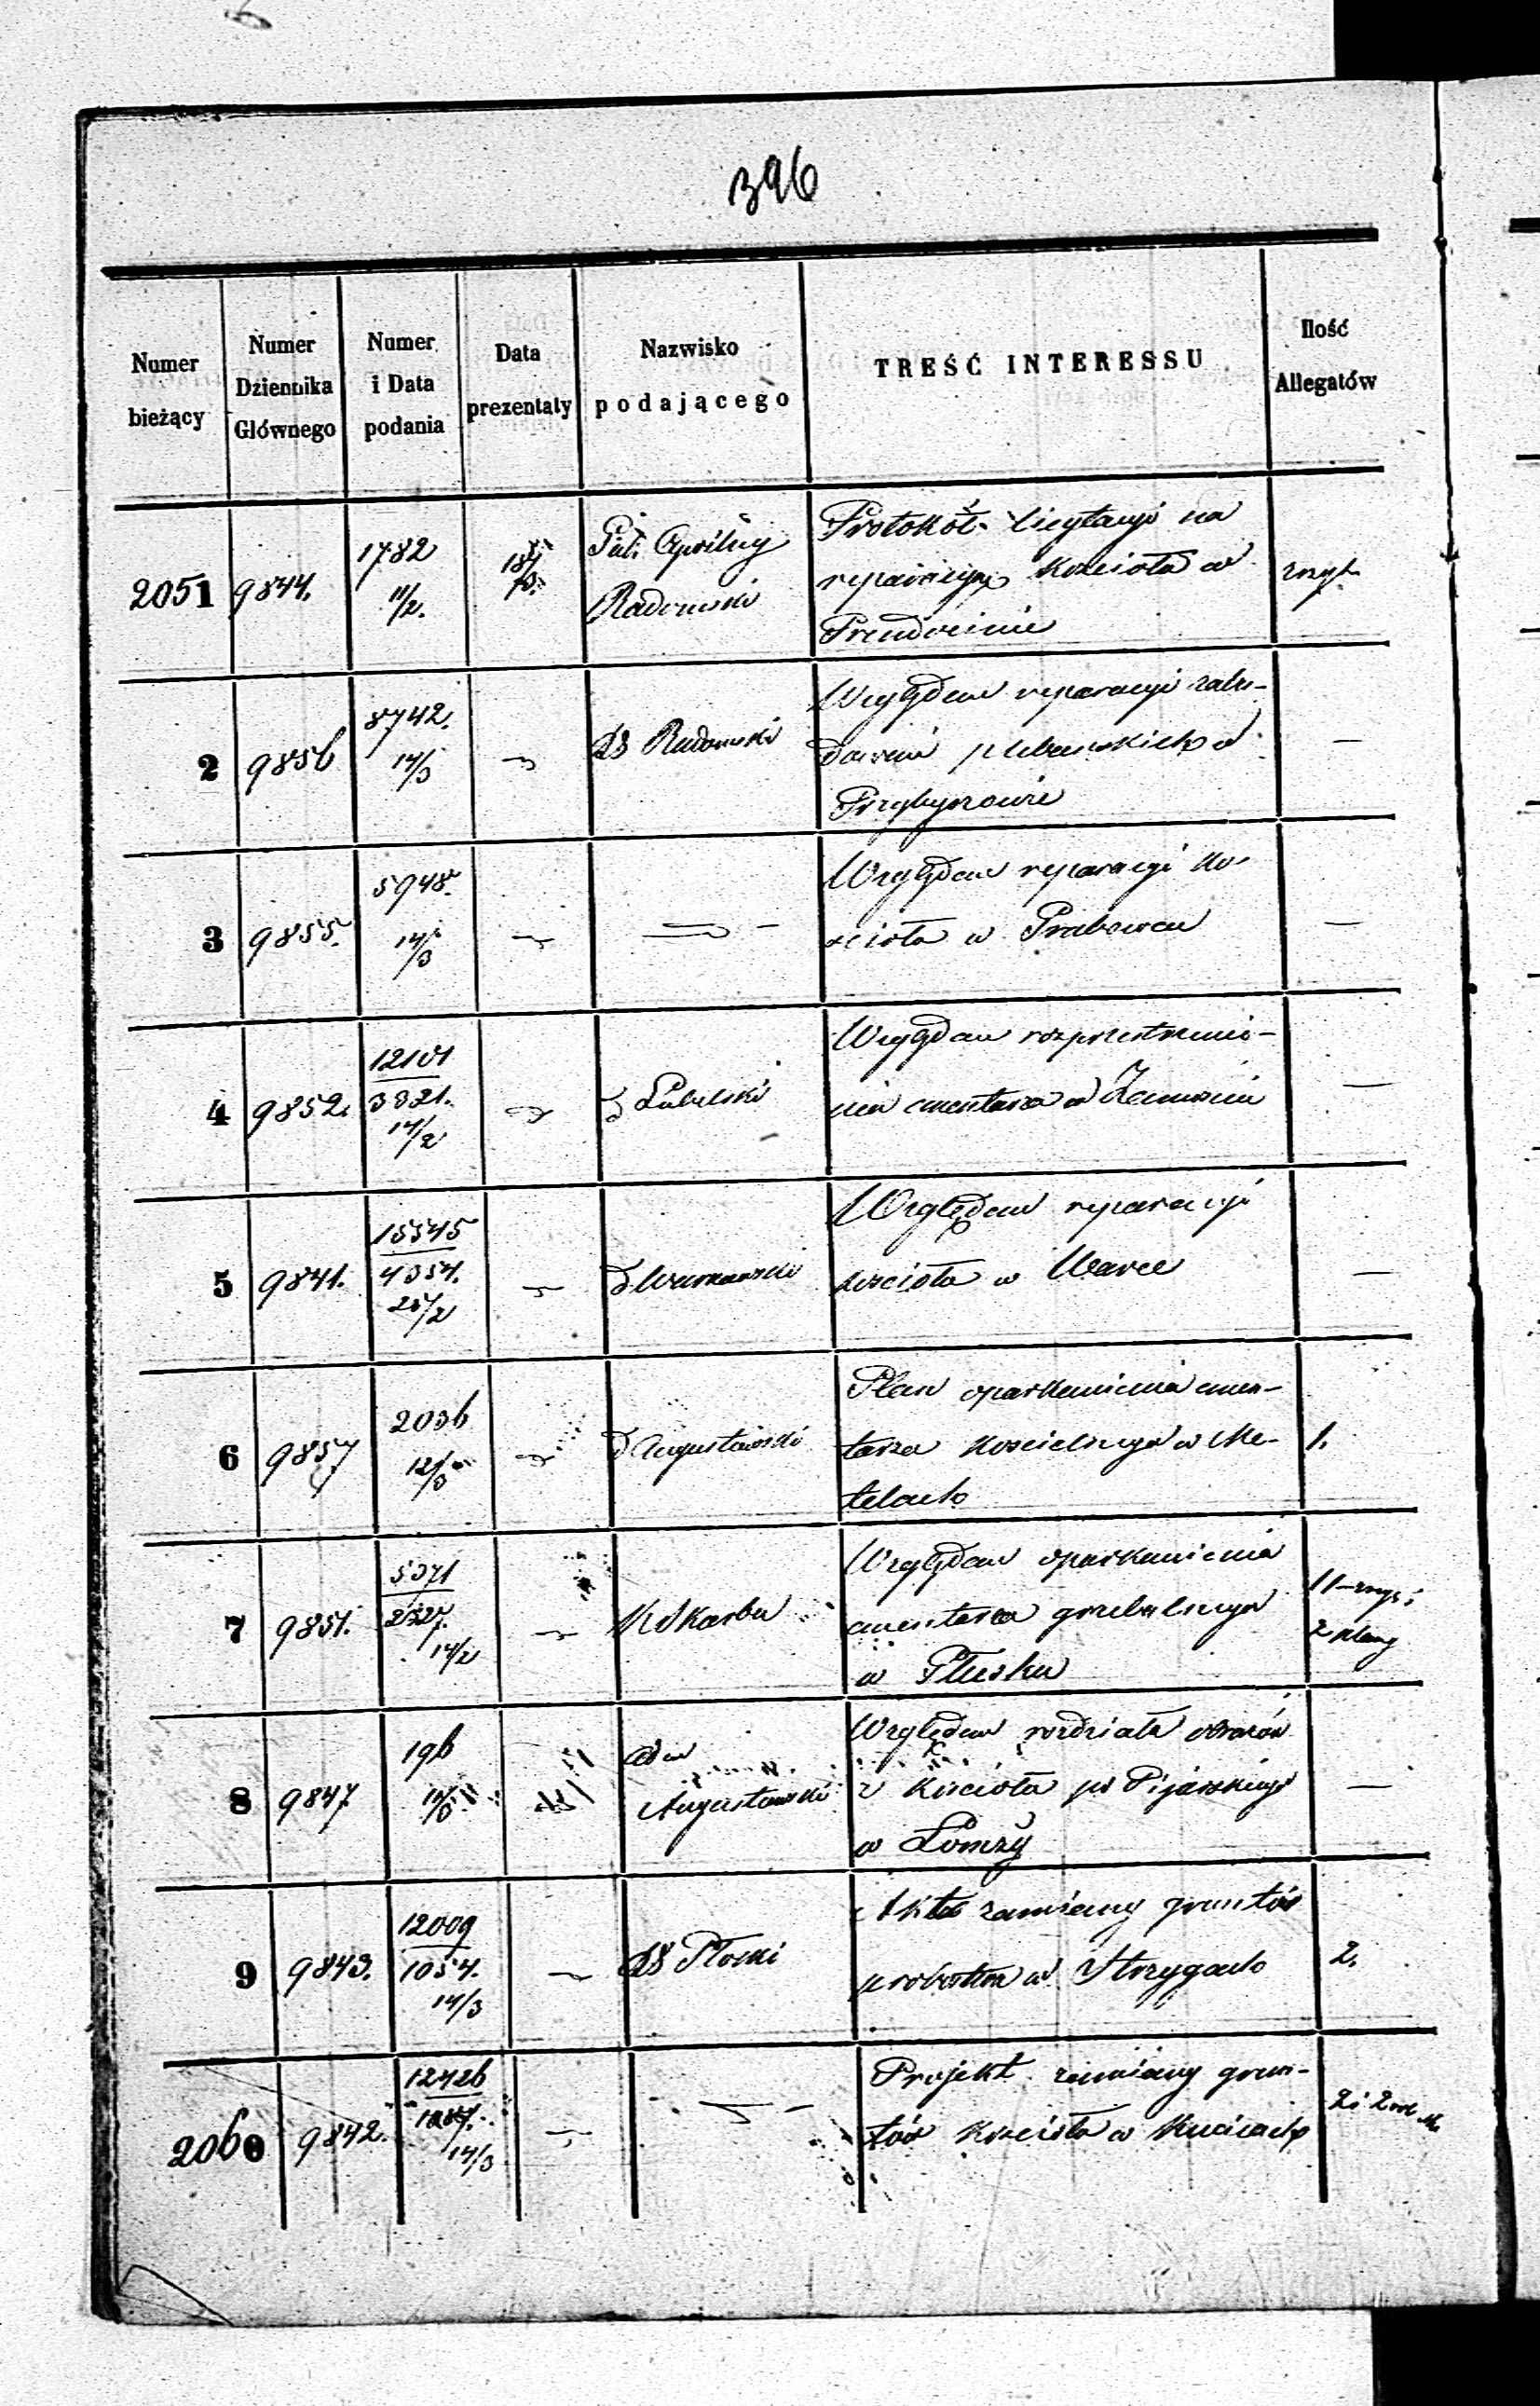 396
Numer bieżący
Numer Dziennika Głównego
Numer i Data podania
Data prezentaty
Nazwisko podającego
TREŚĆ INTERESSU
Ilość Allegatów
2051 9844. 1782 11/2. Radomski
Protokół licytacyi na
reparacyą Kościoła w
2 9856 8742. 14/3 RG Radomski
Względem reparacyi zabu-
dowań plebańskich w
Przybyszowie —
3 9855. 5948. 14/3
Względem reparacyi Ko-
ścioła w Grabowcu —
4 9852. 12101 3321. 14/2 Lubelski
Względem rozprzestrzenie-
nia cmentarza w Zamościu —
5 9841. 15545 4354. Warszawski
Względem reparacyi
kościoła w Warce —
6 9857 2036 12/3 Augustowski
Plan oparkanienia cmen-
tarza Kościelnego w Me-
telach 1.
7 9851. 5371 14/2 K Skarbu
Względem oparkanienia
cmentarza grzebalnego
w Płusku
8 9847 196 Augustowski
Względem rozdziału obrazów
z Kościoła po Pijarskiego
w Łomży —
9 9843. 12009 1054. 14/3 RG Płocki
Akta zamiany gruntów
probostwa w Strzygach 2.
2060 9842. 12426 14/3
Projekt zamiany grun-
tów Kościoła w